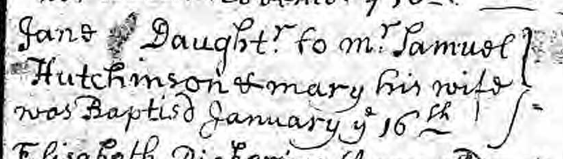 Jane Daught.r to m.r Samuel
Hutchinson & mary his wife
was Baptisd January y.e 16th
Elisabeth